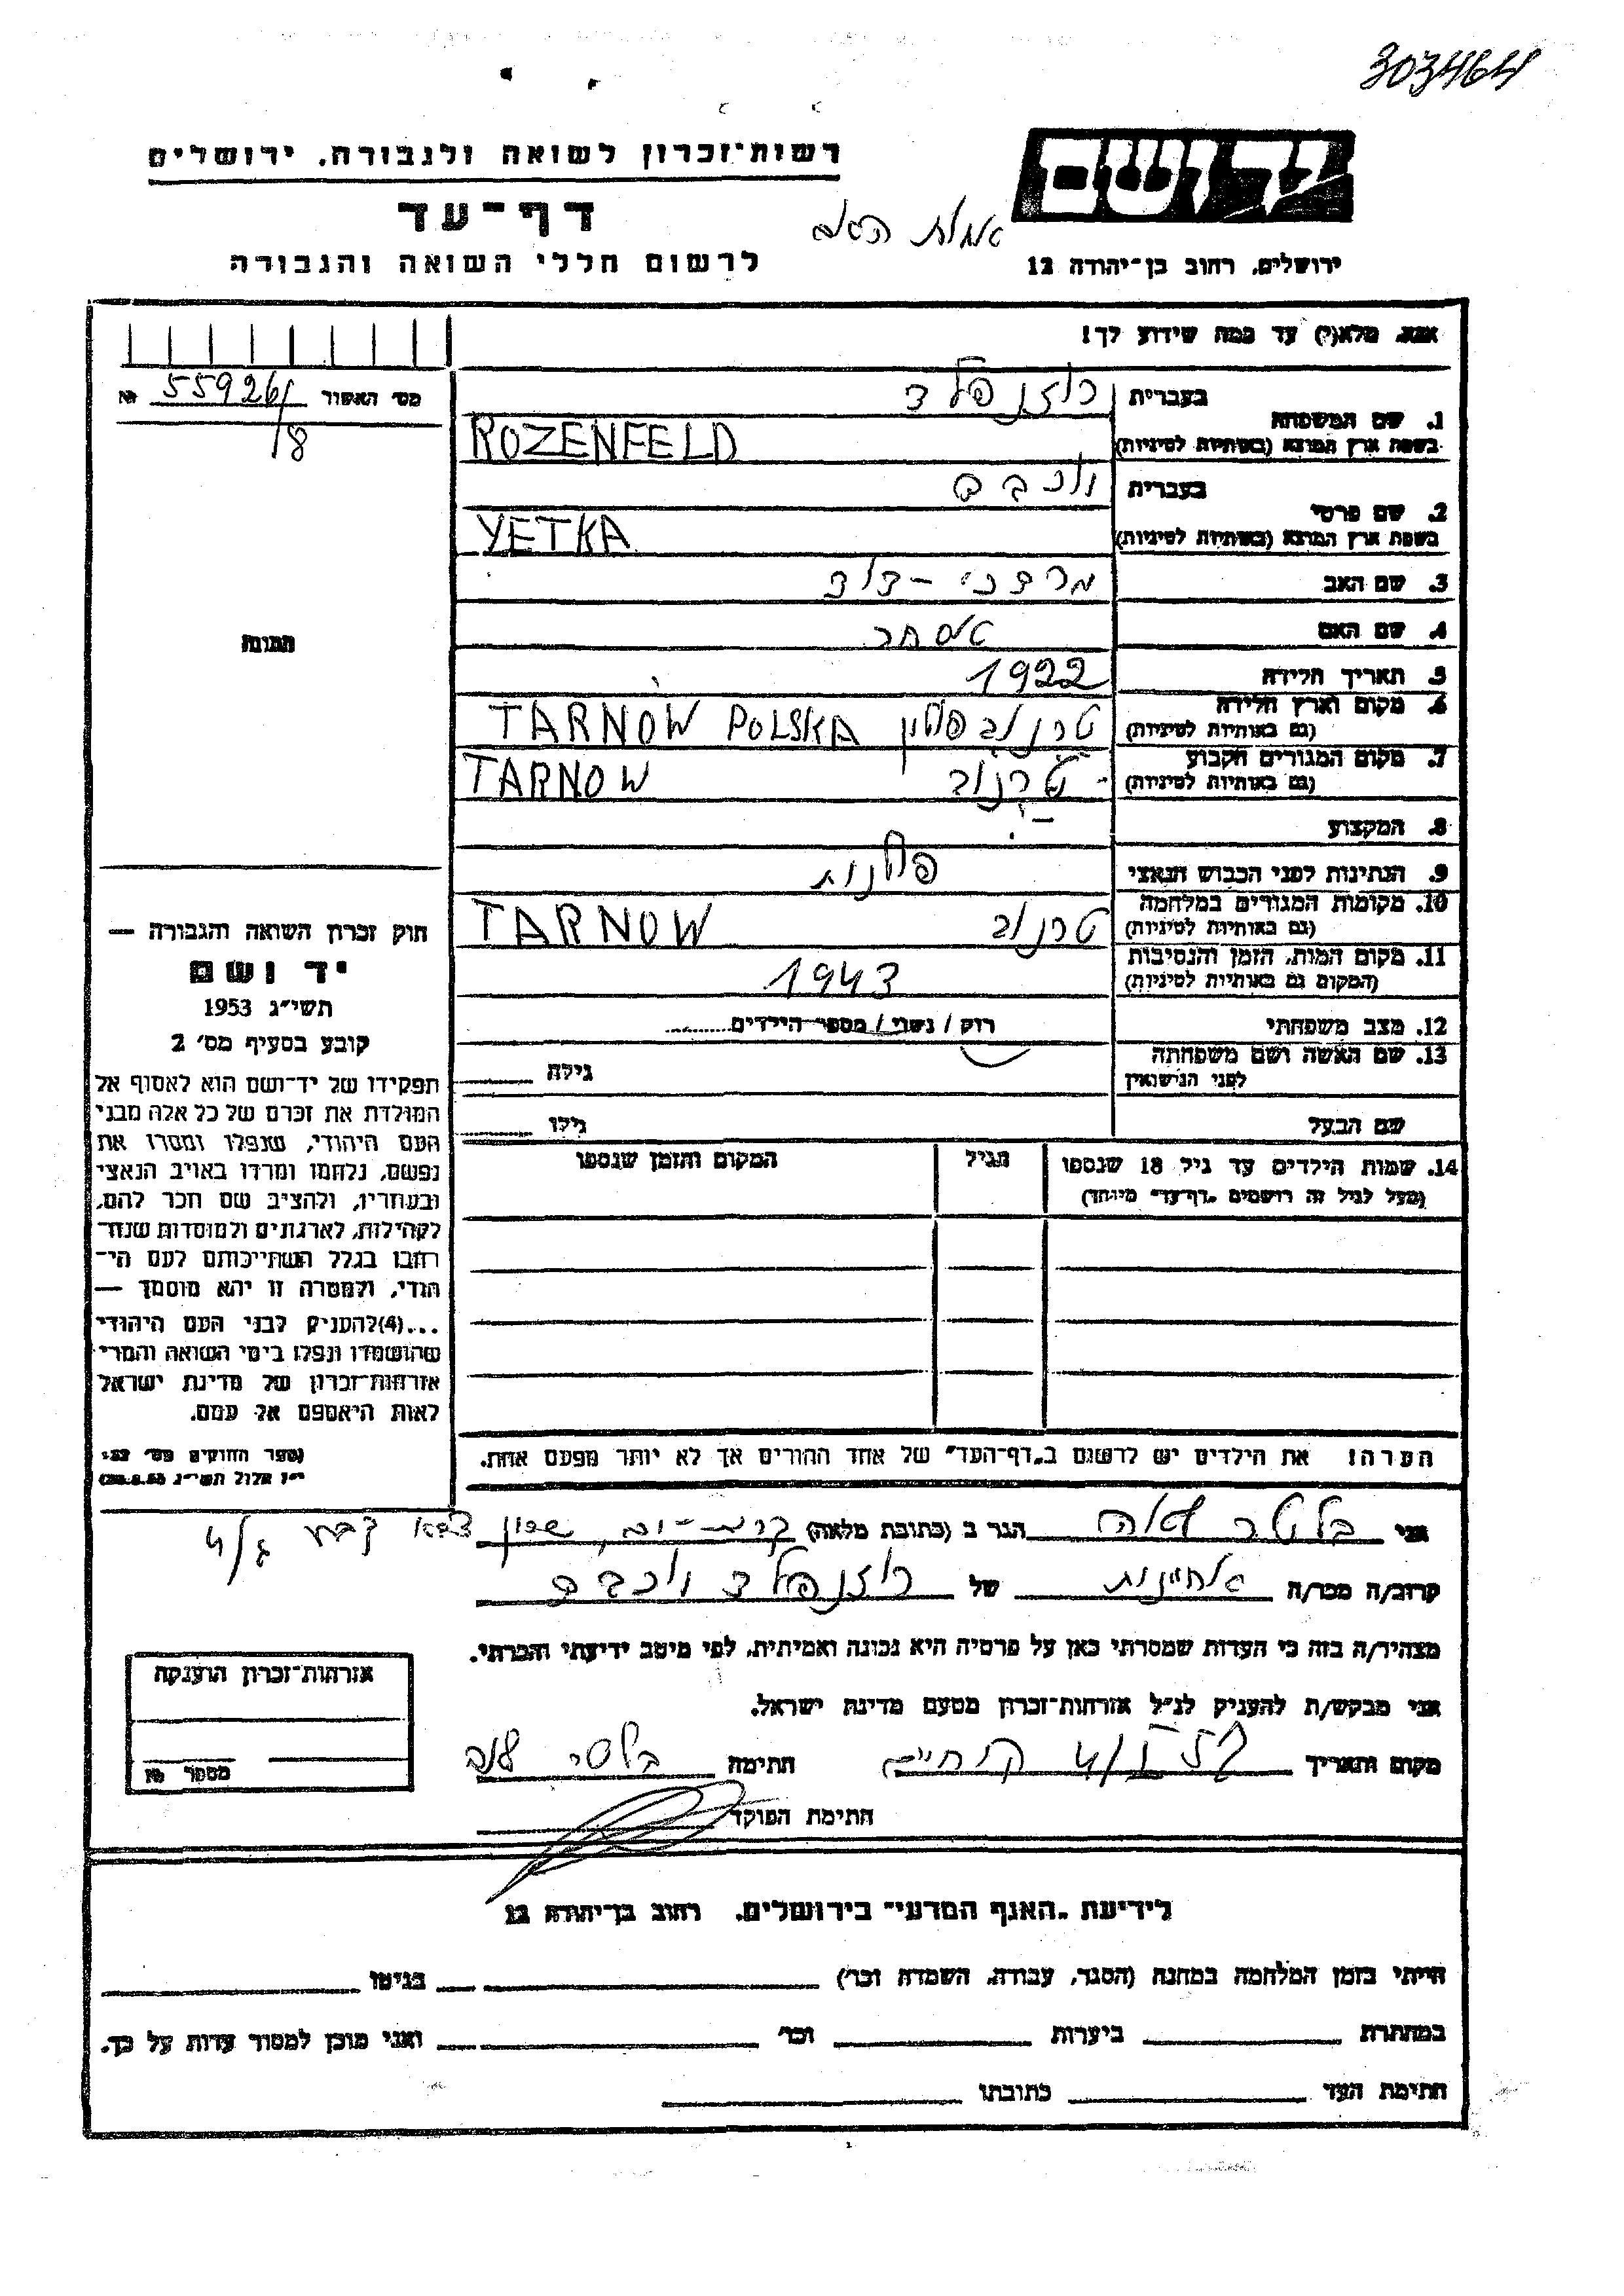 303464
רשות־זכרון לשואה ולגבורה, ירושלים
יד ושם
דף־עד
לרשום חללי השואה והגבורה
ירושלים, רחוב בן־יהודה 12
אנא, מלא(י) עד כמה שידוע לך!
מס׳ האשור 55926/ №
/8
1. שם המשפחה
בעברית רוזנפלד
בשפת ארץ המוצא (באותיות לטיניות) ROZENFELD
2. שם פרטי
בעברית
בשפת ארץ המוצא (באותיות לטיניות) YETKA
3. שם האב מרדכי - דוד
4. שם האם אסתר
5. תאריך הלידה 1922
6. מקום וארץ הלידה (גם באותיות לטיניות) טרנוב פולין TARNOW POLSKA
7. מקום המגורים הקבוע (גם באותיות לטיניות) טרנוב TARNOW
8. המקצוע
9. הנתינות לפני הכבוש הנאצי פולנית
10. מקומות המגורים במלחמה (גם באותיות לטיניות) טרנוב TARNOW
11. מקום המות, הזמן והנסיבות (המקום גם באותיות לטיניות) 1943
12. מצב משפחתי רוק / נשוי / מספר הילדים
13. שם האשה ושם משפחתה לפני הנישואין גילה
שם הבעל גילו
14. שמות הילדים עד גיל 18 שנספו (מעל לגיל זה רושמים „דף־עד״ מיוחד)
הגיל
המקום והזמן שנספו
הערה! את הילדים יש לרשום ב„דף־העד״ של אחד ההורים אך לא יותר מפעם אחת.
תמונה
חוק זכרון השואה והגבורה —
יד ושם
תשי״ג 1953
קובע בסעיף מס׳ 2
תפקידו של יד־ושם הוא לאסוף אל
המולדת את זכרם של כל אלה מבני
העם היהודי, שנפלו ומסרו את
נפשם, נלחמו ומרדו באויב הנאצי
ובעוזריו, ולהציב שם וזכר להם,
לקהילות, לארגונים ולמוסדות שנח־
רבו בגלל השתייכותם לעם הי־
הודי, ולמטרה זו יהא מוסמך —
...(4)להעניק לבני העם היהודי
שהושמדו ונפלו בימי השואה והמרי
אזרחות־זכרון של מדינת ישראל
לאות היאספם אל עמם.
(ספר החוקים מס׳ 132,
י״ז אלול תשי״ג 28.8.53)
אני הגר ב (כתובת מלאה) שכון
קרוב/ה מכר/ה של רוזנפלד
מצהיר/ה בזה כי העדות שמסרתי כאן על פרטיה היא נכונה ואמיתית, לפי מיטב ידיעתי והכרתי.
אני מבקש/ת להעניק לנ״ל אזרחות־זכרון מטעם מדינת ישראל.
מקום ותאריך חתימה
חתימת הפוקד
אזרחות־זכרון הוענקה
מספר №
לידיעת „האגף המדעי״ בירושלים, רחוב בן־יהודה 12
הייתי בזמן המלחמה במחנה (הסגר, עבודה, השמדה וכו׳) בגיטו
במחתרת ביערות וכו׳ ואני מוכן למסור עדות על כך.
חתימת העד כתובתו